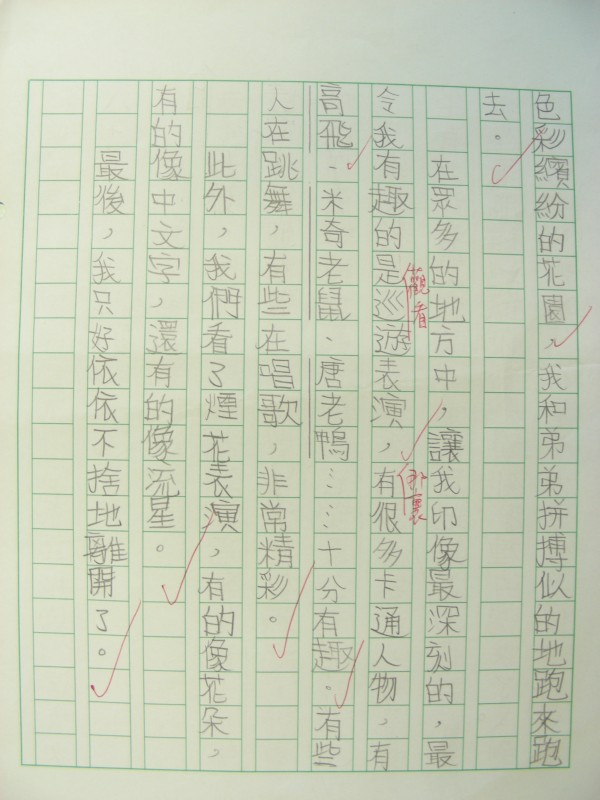 色彩繽紛的花園，我和弟弟拼搏似的地跑來跑
去。
在眾多的地方中，讓我印像最深刻的，最
令我有趣的是巡遊表演，有很多卡通人物，有
觀看
那裏
高飛、米奇老鼠、唐老鴨……十分有趣。有些
人在跳舞，有些在唱歌，非常精彩。
此外，我們看了煙花表演，有的像花朵，
有的像中文字，還有的像流星。
最後，我只好依依不捨地離開了。